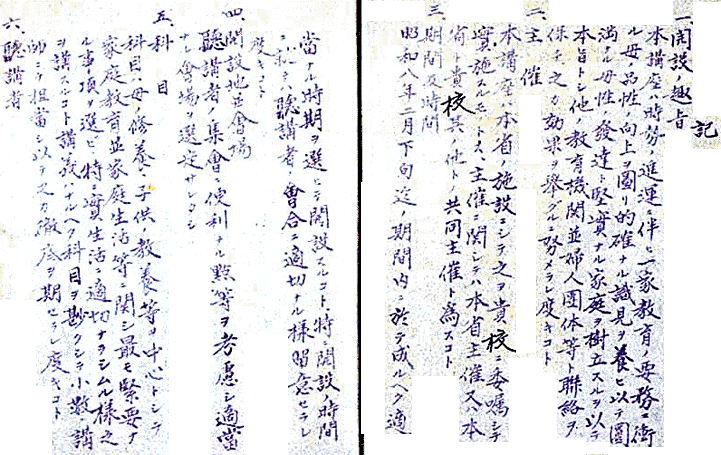 記
一、開設ノ趣旨
本講座ハ時勢ノ進運ニ伴ヒ一家教育ノ要務ニ衝
ル母ノ品性ノ向上ヲ図リ的確ナル識見ヲ養ヒ以テ圓
満ナル母性ノ發達ト堅實ナル家庭ヲ樹立スルヲ以テ
本旨トシ他ノ教育機関並婦人團体等ト聯絡ヲ
保チ之カ効果ヲ擧クルニ努メラレ度キコト
二、主催
本講座ハ本省ノ施設ニシテ之ヲ貴校ニ委嘱シテ
實施スルモノトス、主催ニ関シテハ本省主催又ハ本
省ト貴校其ノ他トノ共同主催ト為スコト
三、期間及時間
昭和八年二月下旬迄ノ期間内ニ於テ成ルヘク適
當ナル時期ヲ選ヒテ開設スルコト、特ニ開設ノ時間
ニ於テハ聽講者ノ會合ニ適切ナル様留意セラレ
度キコト
四、開設地並會場
聽講者ノ集會ニ便利ナル點等ヲ考慮シ適當
ナル會場ヲ選定サレタシ
五、科目
科目ハ母ノ修養、子供ノ教養等ヲ中心トシテ
家庭教育並家庭生活等ニ関シ最モ緊要ナ
ル事項ヲ選ヒ、特ニ實生活ニ適切ナラシムル様之
ヲ講スルコト講義ハナルヘク科目ヲ尠クシテ小数ノ講
師ニテ担當シ以テ之カ徹底ヲ期セラレ度キコト
六、聽講者